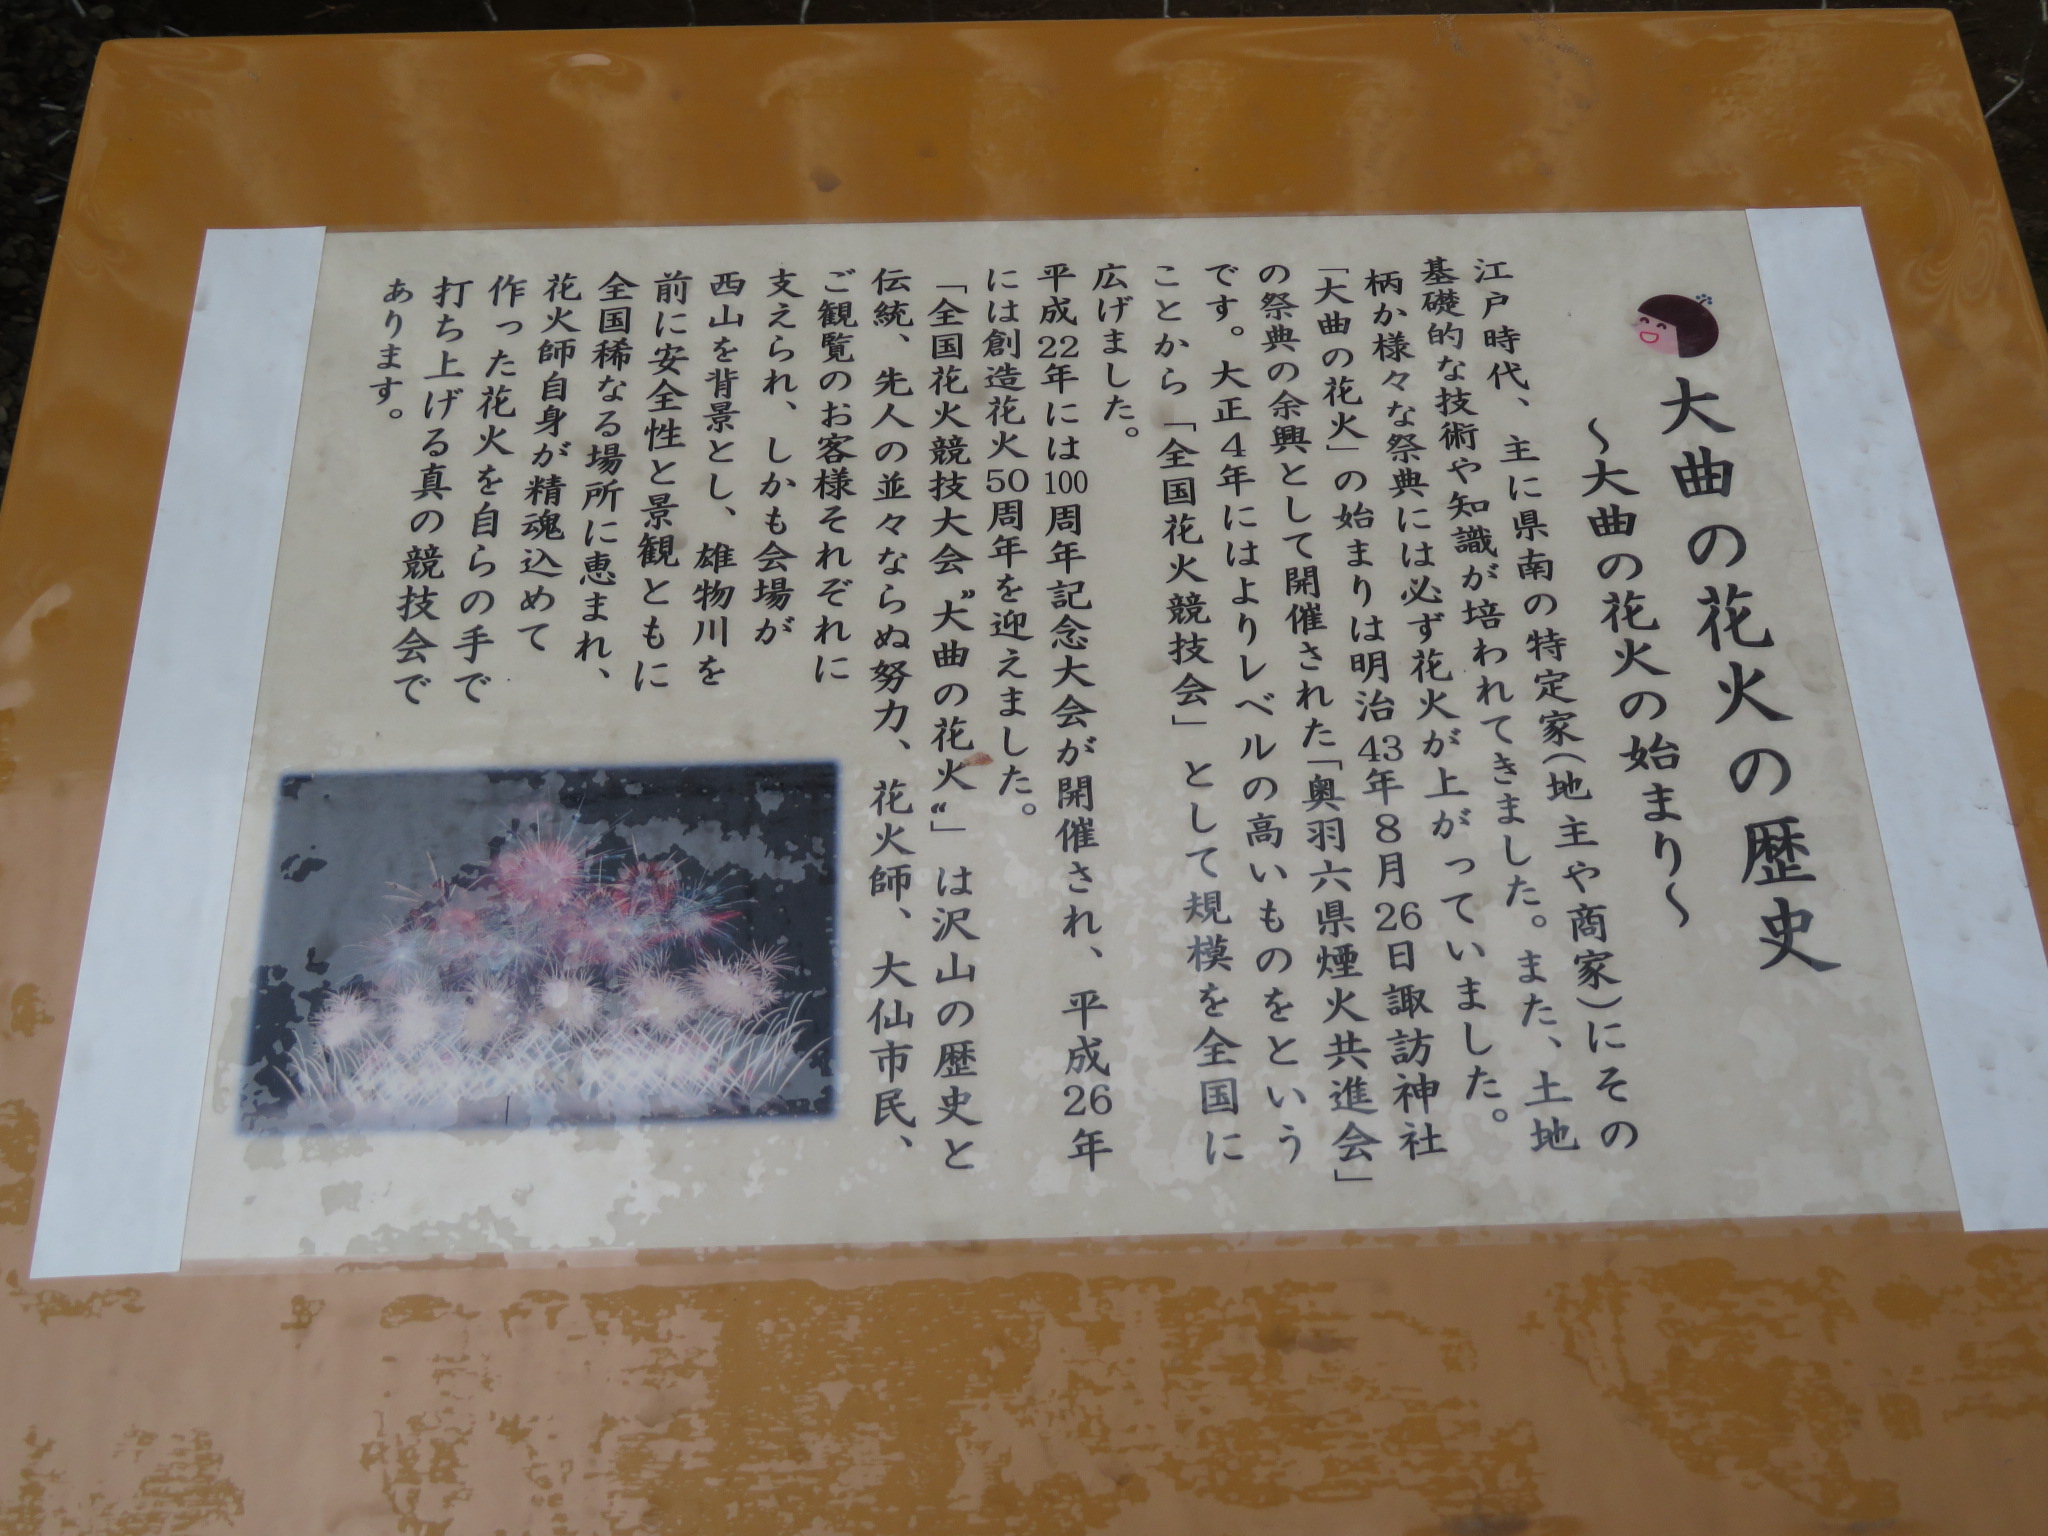 大曲の花火の歴史
～大曲の花火の始まり～
江戸時代、主に県南の特定家（地主や商家）にその
基礎的な技術や知識が培われてきました。また、土地
柄か様々な祭典には必ず花火が上がっていました。
「大曲の花火」の始まりは明治43年8月26日諏訪神社
の祭典の余興として開催された「奥羽六県煙火共進会」
です。大正4年にはよりレベルの高いものをという
ことから「全国花火競技会」として規模を全国に
広げました。
平成22年には100周年記念大会が開催され、平成26年
には創造花火50周年を迎えました。
「全国花火競技大会〝大曲の花火〟」は沢山の歴史と
伝統、先人の並々ならぬ努力、花火師、大仙市民、
ご観覧のお客様それぞれに
支えられ、しかも会場が
西山を背景とし、雄物川を
前に安全性と景観ともに
全国稀なる場所に恵まれ、
花火師自身が精魂込めて
作った花火を自らの手で
打ち上げる真の競技会で
あります。